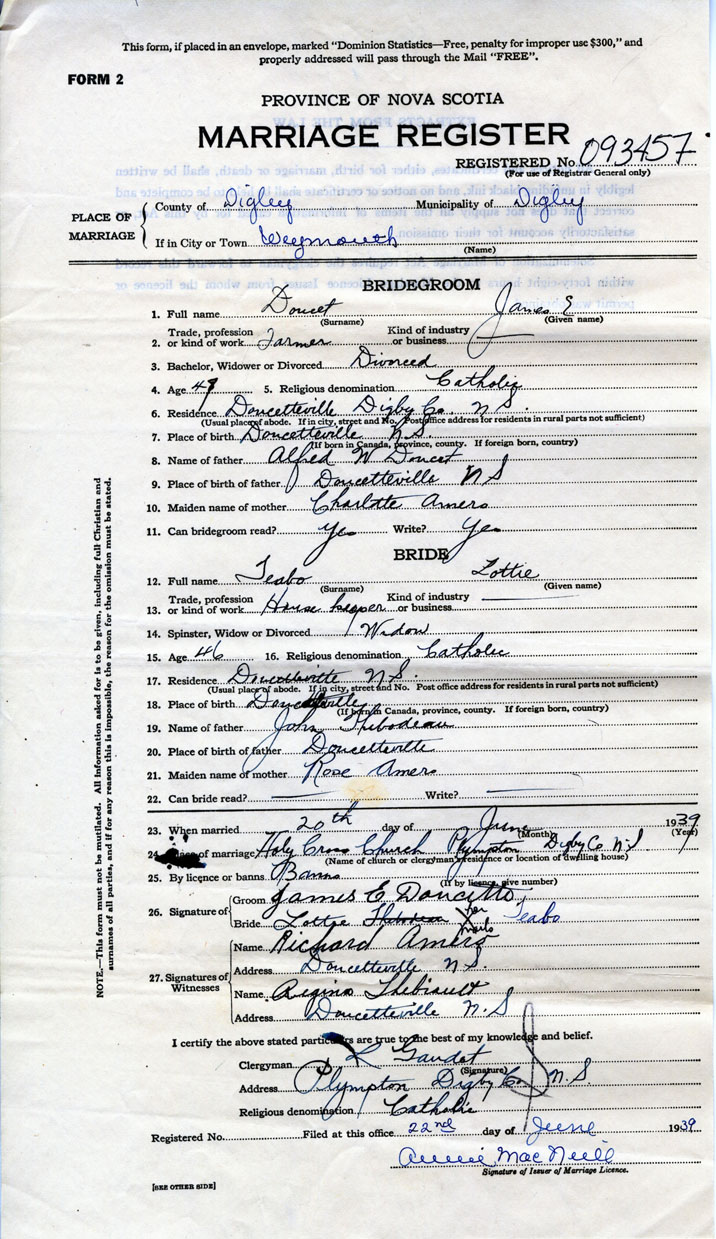 This form, if placed in an envelope, marked "Dominion Statistics—Free, penalty for improper use $300," and
properly addressed will pass through the Mail "FREE".
FORM 2
PROVINCE OF NOVA SCOTIA
MARRIAGE REGISTER
REGISTERED No. 093457
(For use of Registrar General only)
PLACE OF MARRIAGE
County of Digby Municipality of Digby
If in City or Town Weymouth
(Name)
BRIDEGROOM
1. Full name Doucet James E
(Surname) (Given name)
Trade, profession Kind of industry
2. or kind of work Farmer or business
3. Bachelor, Widower or Divorced Divorced
4. Age 49 5. Religious denomination Catholic
6. Residence Doucetteville Digby Co. N S.
(Usual place of abode. If in city, street and No. Post office address for residents in rural parts not sufficient)
7. Place of birth Doucetteville N.S.
(If born in Canada, province, county. If foreign born, country)
8. Name of father Alfred W Doucet
9. Place of birth of father Doucetteville N S
10. Maiden name of mother Charlotte Amero
11. Can bridegroom read? Yes Write? Yes
BRIDE
12. Full name Teabo Lottie
(Surname) (Given name)
Trade, profession Kind of industry
13. or kind of work House keeper or business
14. Spinster, Widow or Divorced Widow
15. Age 46 16. Religious denomination Catholic
17. Residence Doucetteville N S.
(Usual place of abode. If in city, street and No. Post office address for residents in rural parts not sufficient)
18. Place of birth Doucetteville
(If born in Canada, province, county. If foreign born, country)
19. Name of father John Thibodeau
20. Place of birth of father Doucetteville
21. Maiden name of mother Rose Amero
22. Can bride read? Write?
23. When married 20th day of June 1939
(Month) (Year)
24. of marriage Holy Cross Church Plympton Digby Co N.S
(Name of church or clergyman's residence or location of dwelling house)
25. By licence or banns Banns
(If by licence, give number)
26. Signature of
Groom James E Doucette
Bride Lottie Thibodeau her X mark Teabo
27. Signatures of Witnesses
Name Richard Amero
Address Doucetteville N S.
Name Regina Thibeault
Address Doucetteville N. S
I certify the above stated particulars are true to the best of my knowledge and belief.
Clergyman L Gaudet
(Signature)
Address Plympton Digby Co N.S.
Religious denomination Catholic
Registered No. Filed at this office 22nd day of June 1939
Annie MacNeill
Signature of Issuer of Marriage Licence.
[SEE OTHER SIDE]
NOTE.—This form must not be mutilated. All Information asked for is to be given, including full Christian and
surnames of all parties, and if for any reason this is impossible, the reason for the omission must be stated.